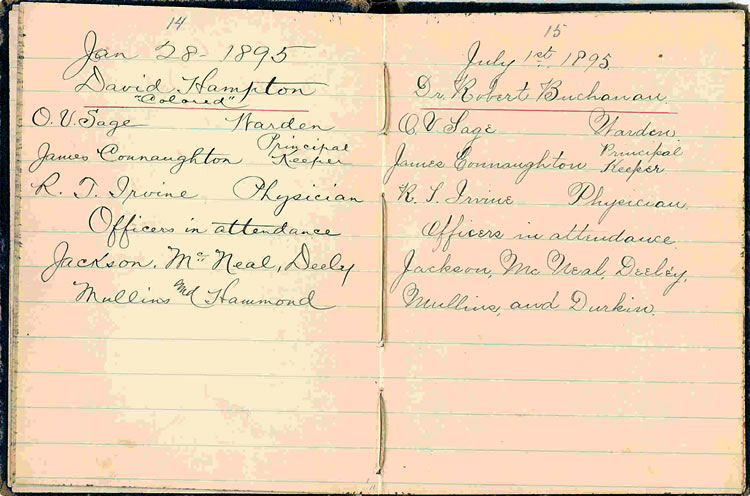 14
Jan 28 - 1895
David Hampton
"Colored"
O. V. Sage Warden
James Connaughton Principal Keeper
R. T. Irvine Physician
Officers in attendance
Jackson, McNeal, Deely
Mullins and Hammond
15
July 1st. 1895.
Dr. Robert Buchanan.
O V Sage Warden.
James Connaughton Principal Keeper
R. T. Irvine Physician.
Officers in attendance.
Jackson, McNeal, Deeley,
Mullins, and Durkin.